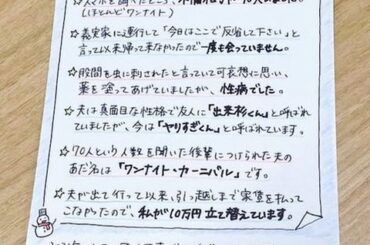 (ほとんどワンナイト)
☆義実家に連行して「今日はここで反省して下さい」と
言って以来帰って来なかったので一度も会っていません。
☆股間を虫に刺されたと言っていて可哀想に思い、
薬を塗ってあげていましたが、性病でした。
☆夫は真面目な性格で友人に「出来杉くん」と呼ばれ
ていましたが、今は「ヤリすぎくん」と呼ばれています。
☆70人という人数を聞いた後輩につけられた夫の
あだ名は「ワンナイト・カーニバル」です。
☆夫が出て行って以来、引っ越しまで家賃を払って
こなかったので、私が10万円立て替えています。